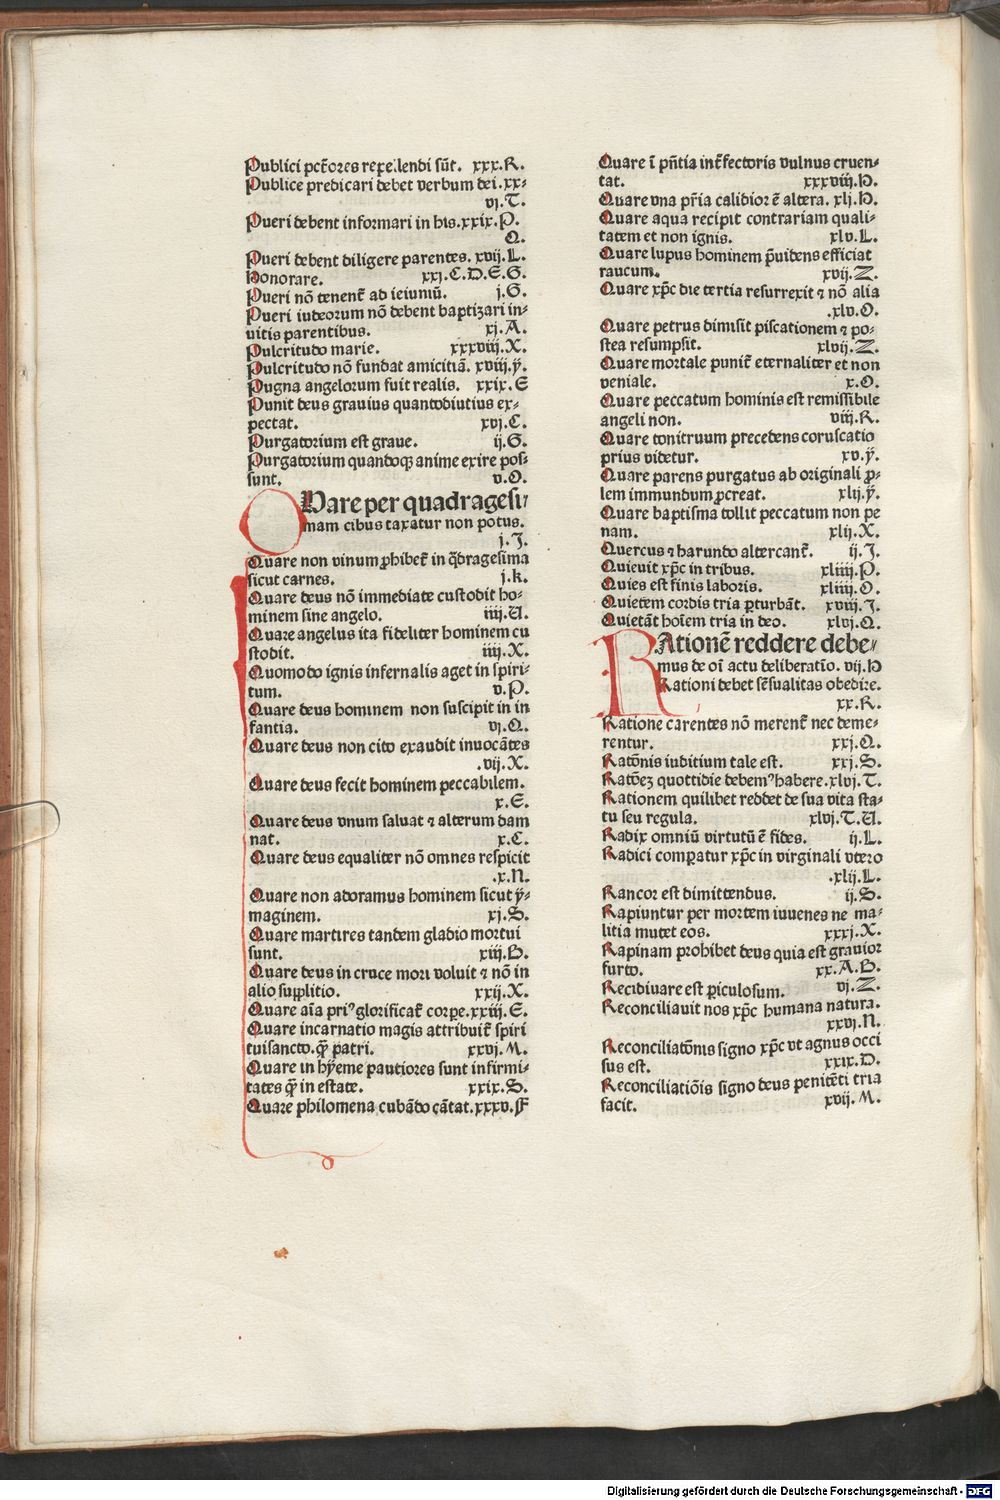 Publici pctores repellendi sūt. xxx.R.
Publice predicari debet verbum dei.xx⸗
vj.T.
Pueri debent informari in his.xxix.P.
Q.
Pueri debent diligere parentes. xvij.L.
Honorare. xxj.C.D.E.G.
Pueri nō tenenť ad ieiuniū. j.G.
Pueri iudeorum nō debent baptizari in⸗
uitis parentibus. xj.A.
Pulcritudo marie. xxxviij.X.
Pulcritudo nō fundat amicitiā. xviij.ÿ.
Pugna angelorum fuit realis. xxix.E
Punit deus grauius quantodiutius ex⸗
pectat. xvj.C.
Purgatorium est graue. ij.G.
Purgatorium quandoqꝫ anime exire pos⸗
sunt. v.O.
QUare per quadragesi⸗
mam cibus taxatur non potus.
j.J.
Quare non vinum ꝓhibeť in q̄dragesima
sicut carnes. j.k.
Quare deus nō immediate custodit ho⸗
minem sine angelo. iiij.U.
Quare angelus ita fideliter hominem cu
stodit. iiij.X.
Quomodo ignis infernalis aget in spiri⸗
tum. v.P.
Quare deus hominem non suscipit in in
fantia. vj.Q.
Quare deus non cito exaudit inuocātes
.vij.X.
Quare deus fecit hominem peccabilem.
x.E.
Quare deus vnum saluat ⁊ alterum dam
nat. x.C.
Quare deus equaliter nō omnes respicit
.x.N.
Quare non adoramus hominem sicut ÿ⸗
maginem. xj.S.
Quare martires tandem gladio mortui
sunt. xiij.B.
Quare deus in cruce mori voluit ⁊ nō in
alio supplitio. xxij.X.
Quare aīa priꝰ glorificať corpe.xxiij.E.
Quare incarnatio magis attribuiť spiri
tuisancto.q̄ꝫ patri. xxvj.M.
Quare in hÿeme pautiores sunt infirmi⸗
tates q̄ꝫ in estate. xxix.S.
Quare philomena cubādo cātat.xxxv.F
Quare ī pn̄tia inťfectoris vulnus cruen⸗
tat. xxxviij.H.
Quare vna pr̄ia calidior ē altera. xlj.H.
Quare aqua recipit contrariam quali⸗
tatem et non ignis. xlv.L.
Quare lupus hominem p̄uidens efficiat
raucum. xvij.Z.
Quare xp̄c die tertia resurrexit ⁊ nō alia
.xlv.O.
Quare petrus dimisit piscationem ⁊ po⸗
stea resumpsit. xlvij.Z.
Quare mortale puniť eternaliter et non
veniale. x.O.
Quare peccatum hominis est remissibile
angeli non. viij.R.
Quare tonitruum precedens coruscatio
prius videtur. xv.ÿ.
Quare parens purgatus ab originali ꝓ⸗
lem immundum ꝓcreat. xlij.ÿ.
Quare baptisma tollit peccatum non pe
nam. xlij.X.
Quercus ⁊ harundo altercanť. ij.J.
Quieuit xp̄c in tribus. xliiij.P.
Quies est finis laboris. xliiij.O.
Quietem cordis tria ꝑturbāt. xviij.J.
Quietāt hoīem tria in deo. xlvj.Q.
RAtionē reddere debe⸗
mus de oī actu deliberatīo. vij.H
Rationi debet sēsualitas obedire.
xx.R.
Ratione carentes nō merenť nec deme⸗
rentur. xxj.Q.
Ratōnis iuditium tale est. xxj.S.
Ratōeꝫ quottidie debemꝰ habere.xlvj.T.
Rationem quilibet reddet de sua vita sta⸗
tu seu regula. xlvj.T.U.
Radix omniū virtutū ē fides. ij.L.
Radici comparatur xp̄c in virginali vtero
.xlij.L.
Rancor est dimittendus. ij.S.
Rapiuntur per mortem iuuenes ne ma⸗
litia mutet eos. xxxj.X.
Rapinam prohibet deus quia est grauior
furto. xx.A.B.
Recidiuare est ꝑiculosum. vj.Z.
Reconciliauit nos xp̄c humana natura.
xxvj.N.
Reconciliatōnis signo xp̄c vt agnus occi
sus est. xxix.D.
Reconciliatiōis signo deus penitēti tria
facit. xvij.M.
Digitalisierung gefördert durch die Deutsche Forschungsgemeinschaft - DFG